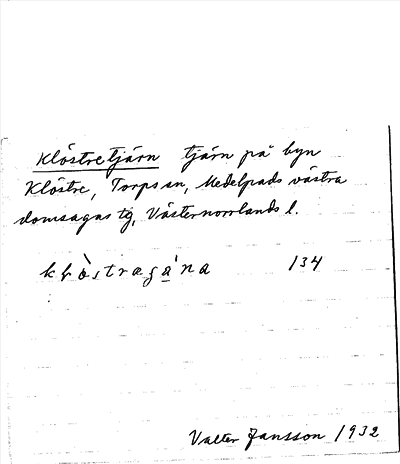 Klöstretjärn tjärn på byn
Klöstre, Torps sn, Medelpads västra
domsagas tg, Västernorrlands l.
134
Valter Jansson 1932